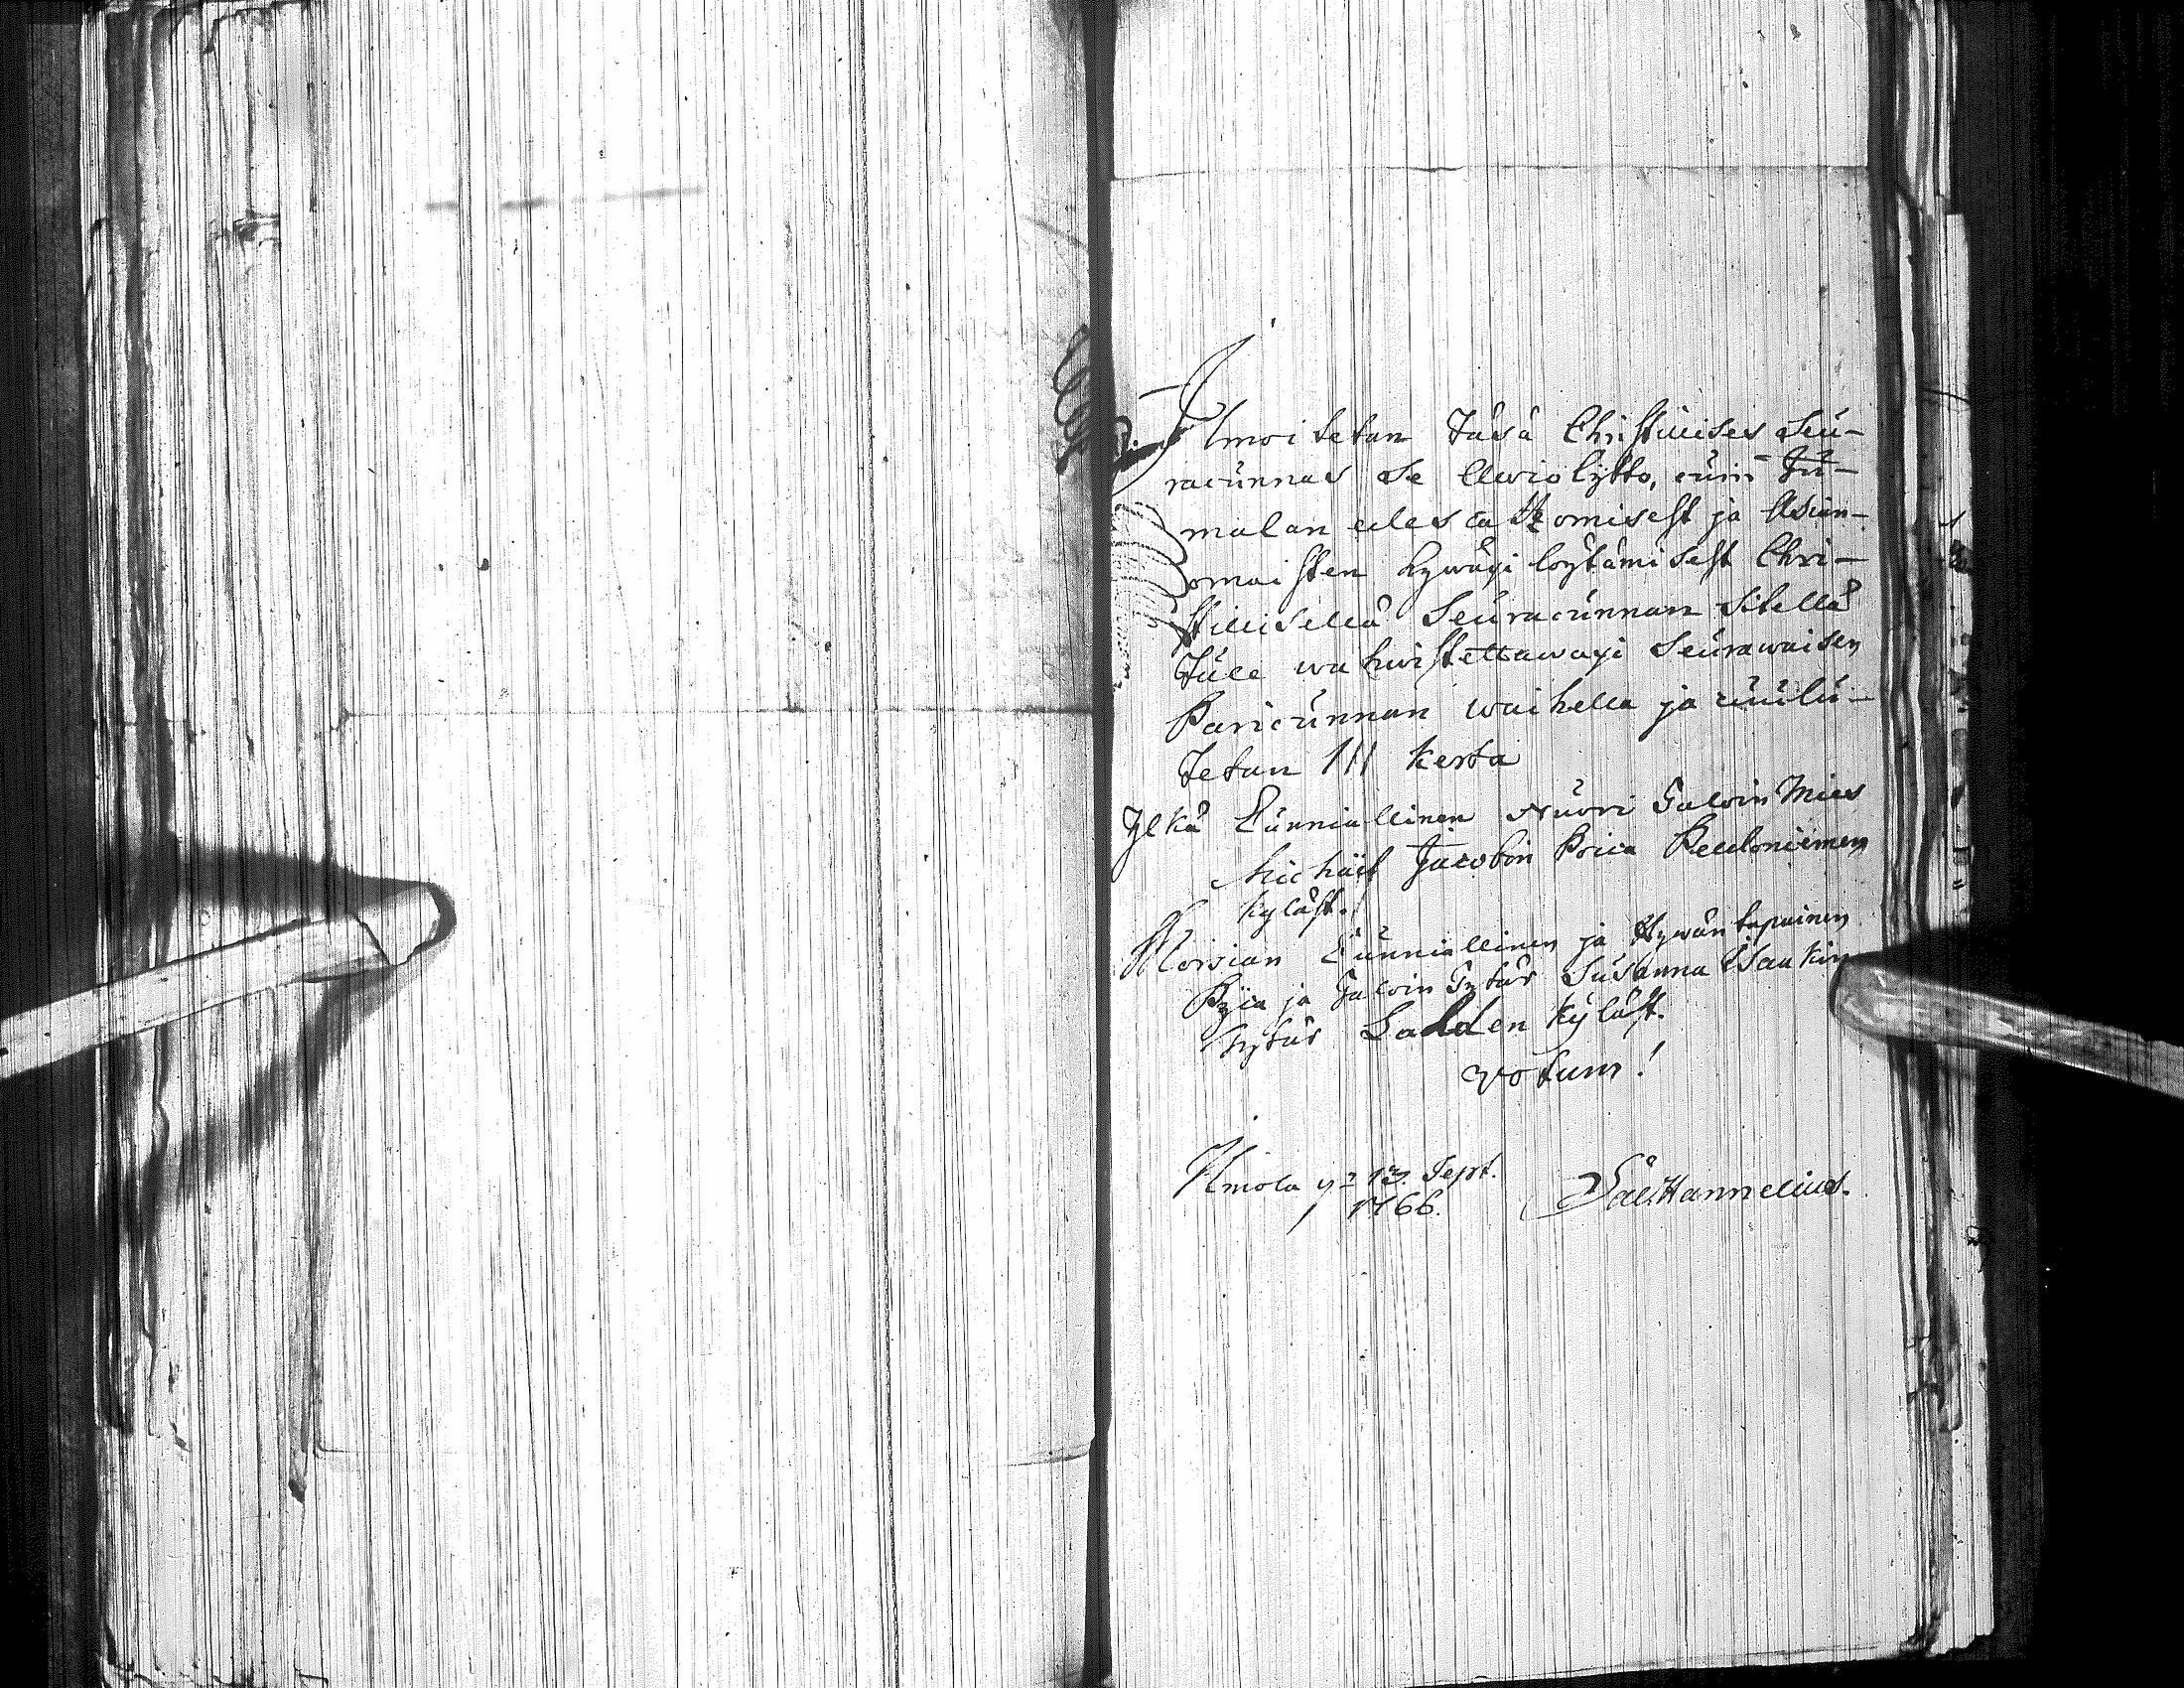 Ilmoitetan Täsä Christillises Seu-
racunnas se Awioliitto, cuin Ju-
malan edescatzomisest ja Asian-
omaisten hywäxi löytämisest Chri-
stillisellä Seuracunnan sitellä
Tule wahwistettawaxi Seurawaisen
Paricunnan waihella ja cuulu-
tetan III Kerta
Ylkä Cunniallinen Nuori Taloin Mies
Michäel Jacobin Poica Peldoniemen
Kyläst.
Morsian Cunniallinen ja Hywäntapainen
Pijca ja Taloin Tytär Susanna Isaakin
Tytär Lahden Kyläst.
Votum!
Ilmola y 13. Sept.
1766.
Hannelius.